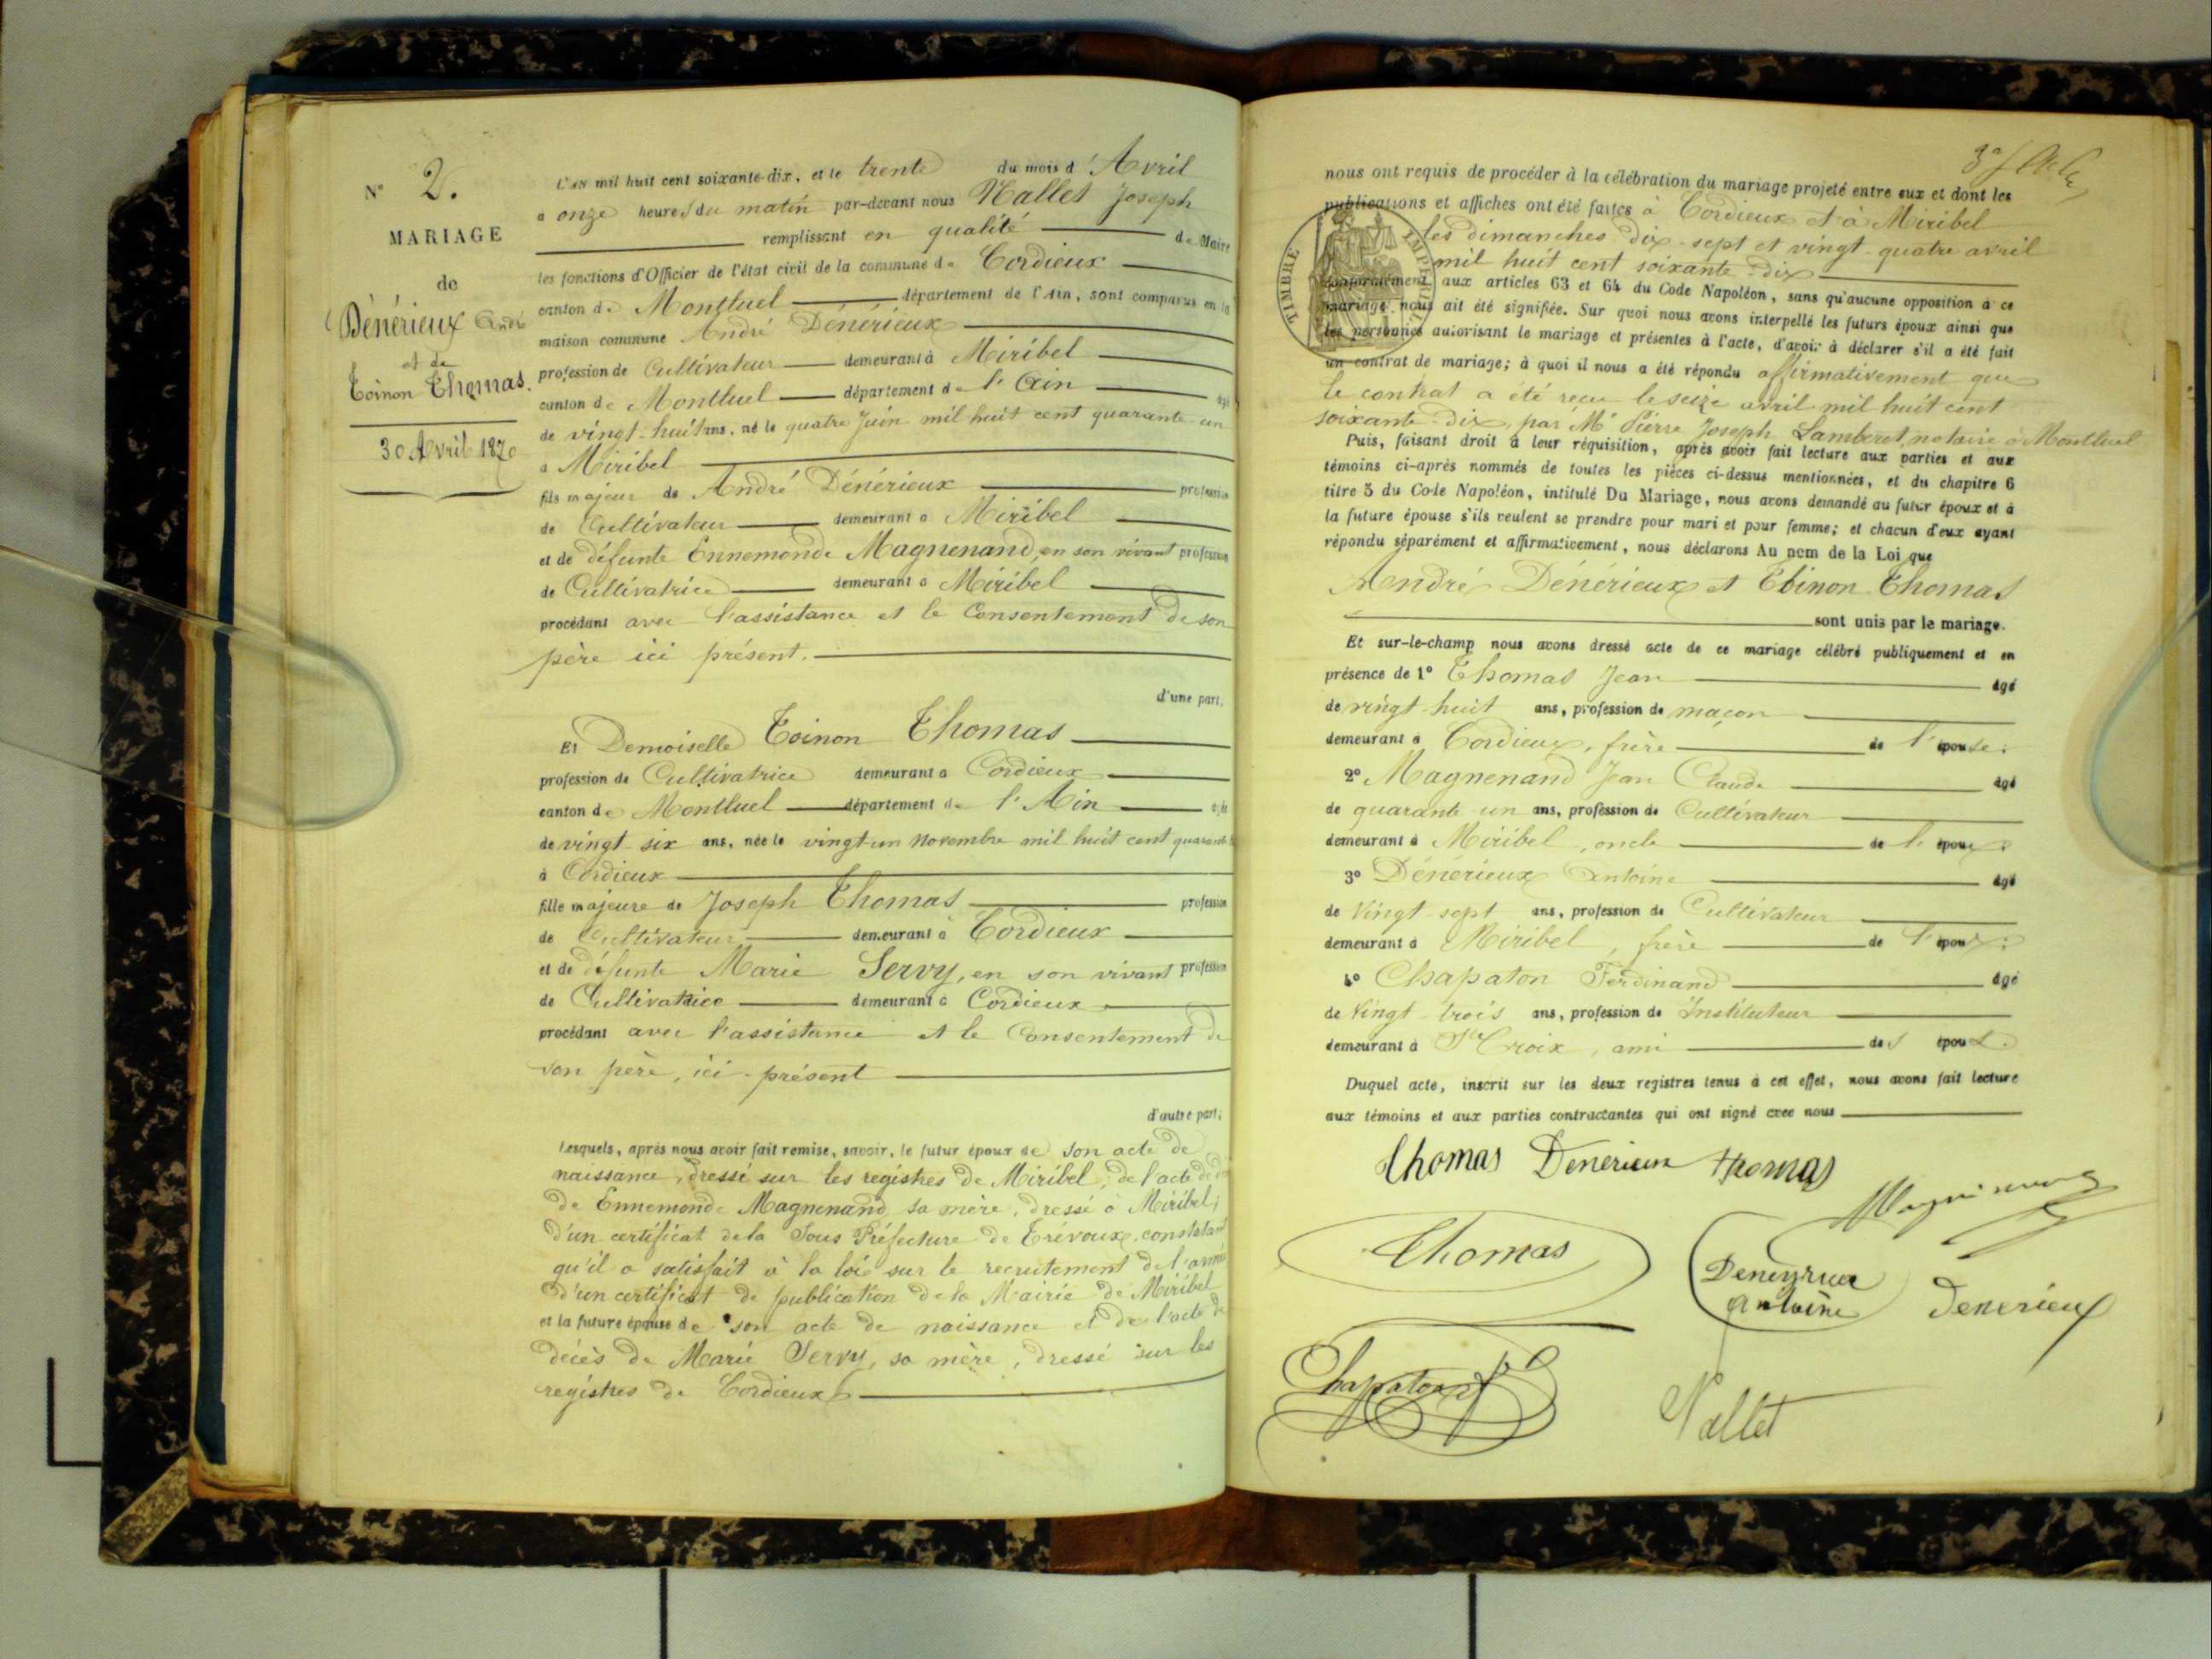 N° 2.
MARIAGE
de
Dénérieux André
et de
Toinon Thomas.
30 Avril 1870
L'AN mil huit cent soixante-dix, et le trente du mois d'Avril
a onze heures du matin par-devant nous Nallet Joseph
remplissant en qualité de Maire
les fonctions d'Officier de l'état civil de la commune de Cordieux
canton de Montluel département de l'Ain, sont comparus en la
maison commune André Dénérieux
profession de Cultivateur demeurant à Miribel
canton de Montluel département de l'Ain âgé
de vingt-huit ans, né le quatre Juin mil huit cent quarante-un
a Miribel
fils majeur de André Dénérieux profession
de Cultivateur demeurant a Miribel
et de défunte Ennemonde Magnenand, en son vivant profession
de Cultivatrice demeurant a Miribel
procédant avec l'assistance et le Consentement de son
père ici présent.
d'une part,
Et Demoiselle Toinon Thomas
profession de Cultivatrice demeurant a Cordieux
canton de Montluel département de l'Ain âgée
de vingt six ans, née le vingt-un novembre mil huit cent
à Cordieux
fille majeure de Joseph Thomas profession
de Cultivateur demeurant à Cordieux
et de défunte Marie Servy, en son vivant profession
de Cultivatrice demeurant à Cordieux
procédant avec l'assistance et le Consentement de
son père, ici présent
d'autre part;
Lesquels, après nous avoir fait remise, savoir, le futur époux de son acte de
naissance, dressé sur les registres de Miribel; de l'acte de
de Ennemonde Magnenand sa mère, dressé à Miribel;
d'un certificat de la Sous Préfecture de Trévoux, constatant
qu'il a satisfait à la loi sur le recrutement de l'armée
d'un certificat de publication de la Mairie de Miribel
et la future épouse de son acte de naissance et de l'acte de
décès de Marie Servy, sa mère, dressé sur les
registres de Cordieux
nous ont requis de procéder à la célébration du mariage projeté entre eux et dont les
publications et affiches ont été faites à Cordieux et à Miribel
les dimanches dix-sept et vingt-quatre avril
mil huit cent soixante-dix
TIMBRE IMPERIAL
conformément aux articles 63 et 64 du Code Napoléon, sans qu'aucune opposition à ce
mariage nous ait été signifiée. Sur quoi nous avons interpellé les futurs époux ainsi que
les personnes autorisant le mariage et présentes à l'acte, d'avoir à déclarer s'il a été fait
un contrat de mariage; à quoi il nous a été répondu affirmativement que
le contrat a été reçu le seize avril mil huit cent
soixante-dix, par Me Pierre Joseph Lamberet, notaire à Montluel
Puis, faisant droit à leur réquisition, après avoir fait lecture aux parties et aux
témoins ci-après nommés de toutes les pièces ci-dessus mentionnées, et du chapitre 6
titre 5 du Code Napoléon, intitulé Du Mariage, nous avons demandé au futur époux et à
la future épouse s'ils veulent se prendre pour mari et pour femme; et chacun d'eux ayant
répondu séparément et affirmativement, nous déclarons Au nom de la Loi que
André Dénérieux et Toinon Thomas
sont unis par le mariage.
Et sur-le-champ nous avons dressé acte de ce mariage célébré publiquement et en
présence de 1° Thomas Jean âgé
de vingt huit ans, profession de maçon
demeurant a Cordieux, frère de l'épouse;
2° Magnenand Jean Claude âgé
de quarante un ans, profession de Cultivateur
demeurant à Miribel, oncle de l'époux;
3° Dénérieux Antoine âgé
de Vingt sept ans, profession de Cultivateur
demeurant à Miribel, frère de l'époux;
4° Chapaton Ferdinand âgé
de Vingt-trois ans, profession de Instituteur
demeurant à Ste Croix, ami des époux
Duquel acte, inscrit sur les deux registres tenus à cet effet, nous avons fait lecture
aux témoins et aux parties contractantes qui ont signé avec nous
Thomas Denerieux Thomas
Thomas
antoine
denerieux
Chapaton
Nallet